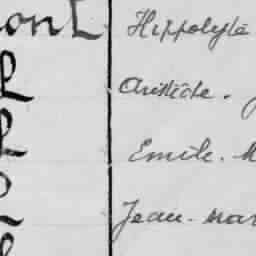 ont Hippolyte
Aristide.
Emile. M
Jean-Mar